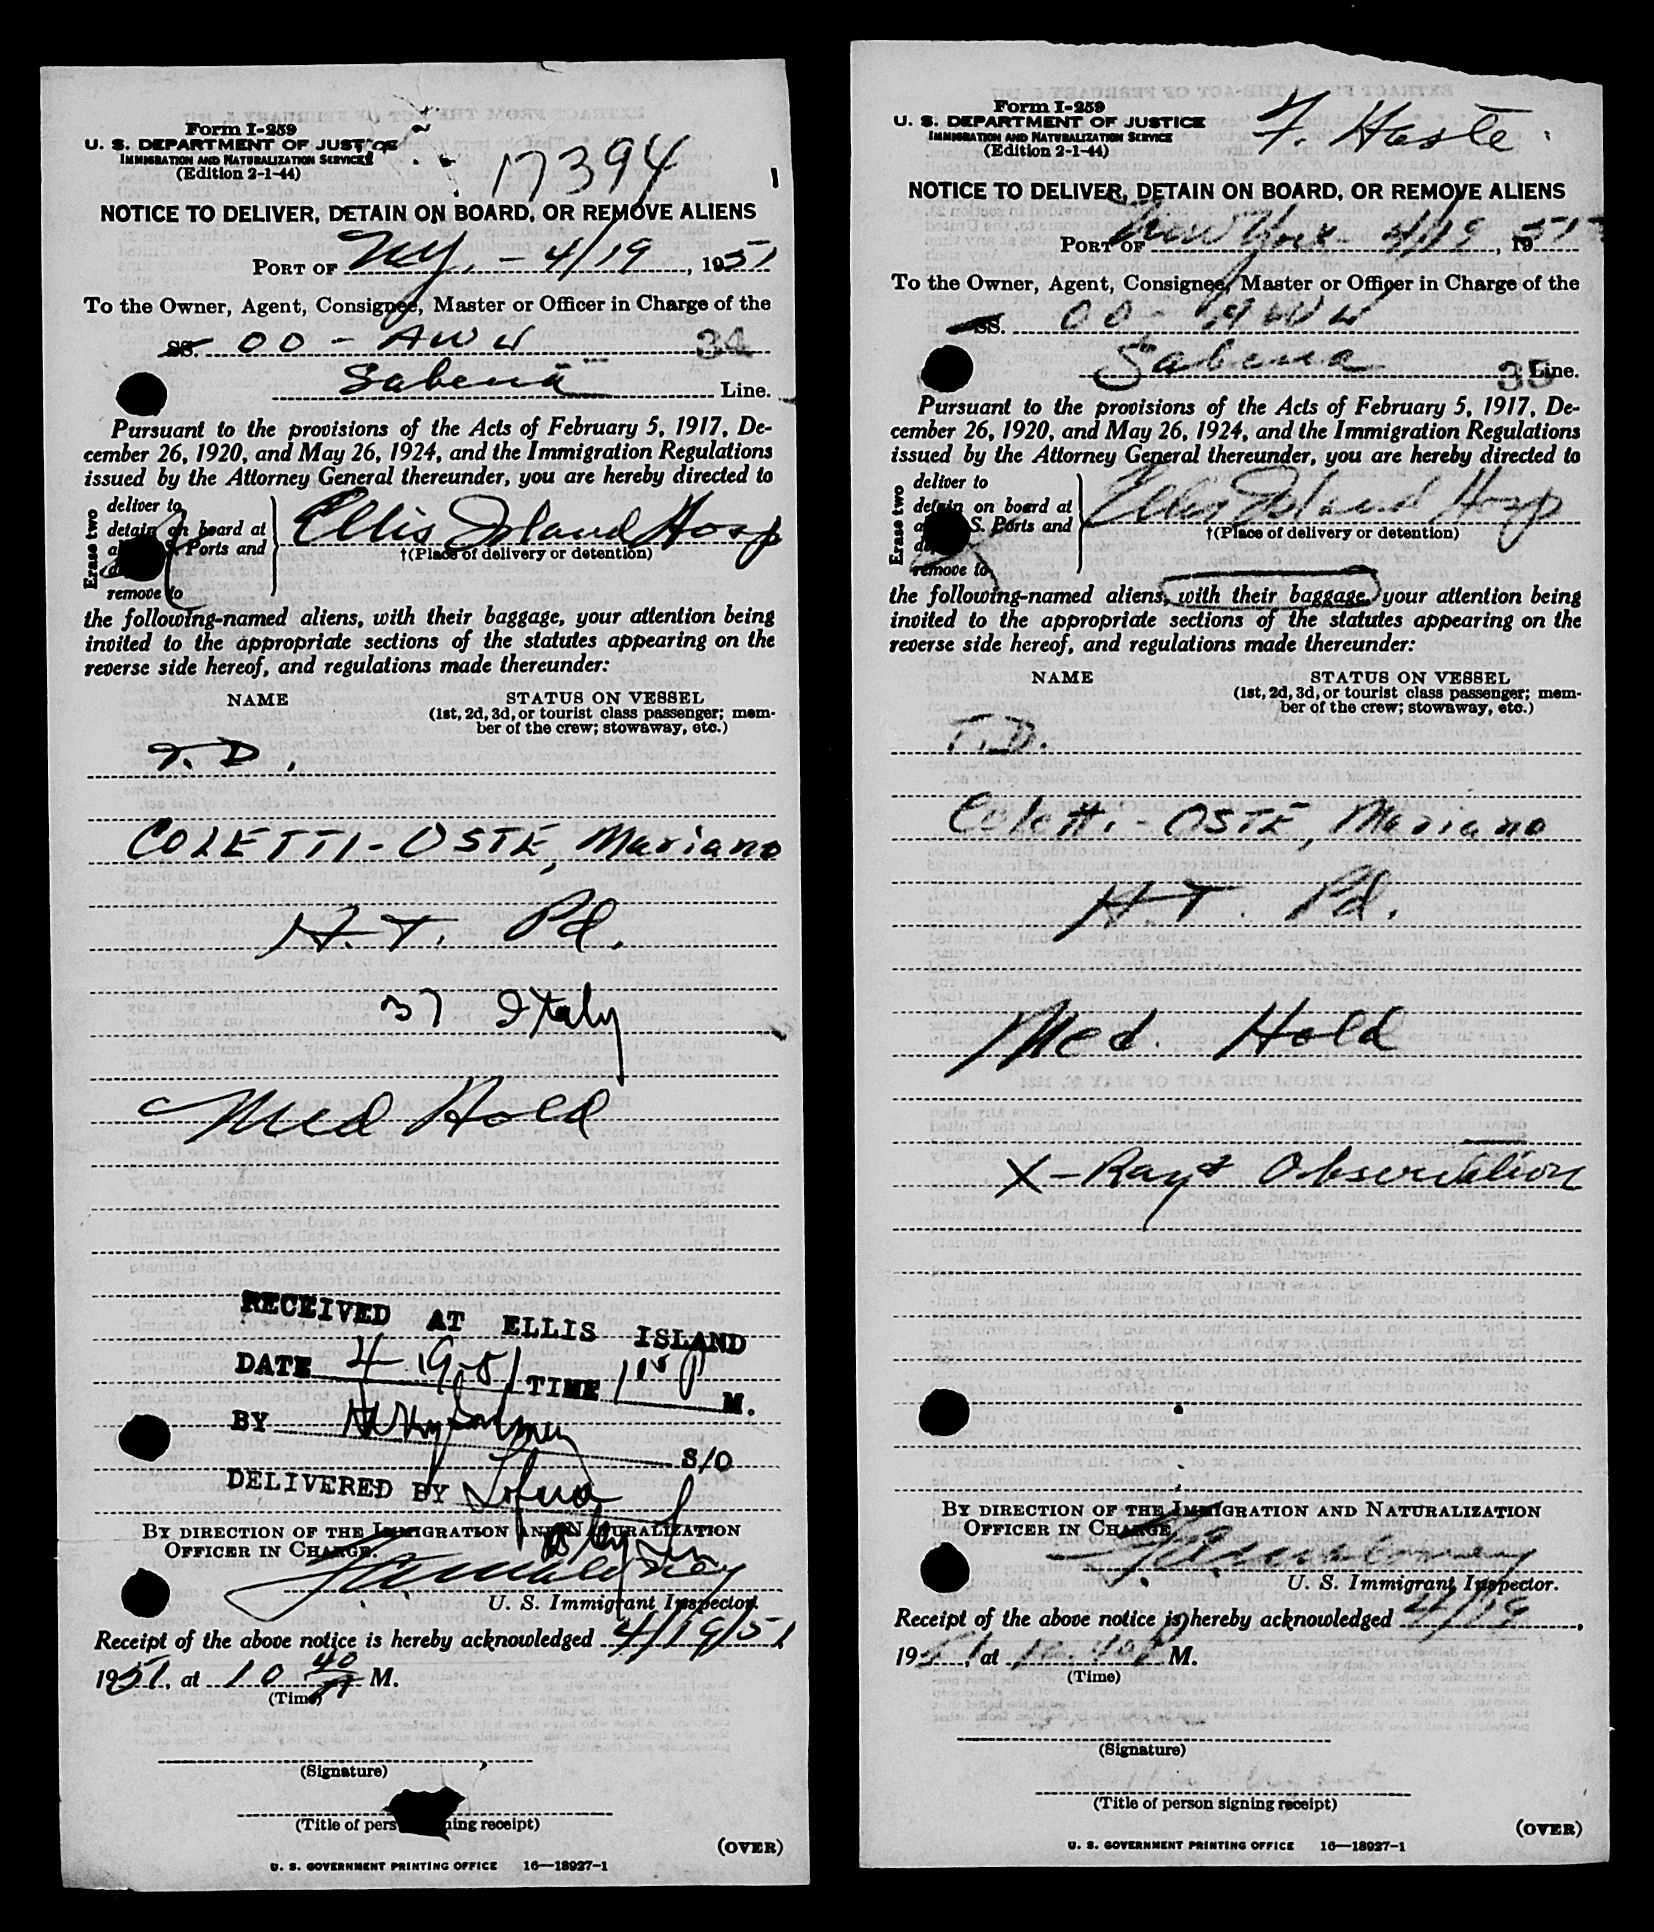 Form I-259
U. S. DEPARTMENT OF JUSTICE
IMMIGRATION AND NATURALIZATION SERVICE
(Edition 2-1-44)
17394
NOTICE TO DELIVER, DETAIN ON BOARD, OR REMOVE ALIENS
PORT OF NY. - 4/19, 1951
To the Owner, Agent, Consignee, Master or Officer in Charge of the
SS. OO - AWW 34
Sabena Line.
Pursuant to the provisions of the Acts of February 5, 1917, De-
cember 26, 1920, and May 26, 1924, and the Immigration Regulations
issued by the Attorney General thereunder, you are hereby directed to
Erase two
deliver to
detain on board at
Ports and
remove to
Ellis Island Hosp
†(Place of delivery or detention)
the following-named aliens, with their baggage, your attention being
invited to the appropriate sections of the statutes appearing on the
reverse side hereof, and regulations made thereunder:
NAME STATUS ON VESSEL
(1st, 2d, 3d, or tourist class passenger; mem-
ber of the crew; stowaway, etc.)
T. D.
COLETTI-OSTE, Mariano
H.T. Pd.
37 Italy
Med Hold
RECEIVED AT ELLIS ISLAND
DATE 4-19-51 TIME M.
BY S/O
DELIVERED BY
BY DIRECTION OF THE IMMIGRATION AND NATURALIZATION
OFFICER IN CHARGE.
U. S. Immigrant Inspector.
Receipt of the above notice is hereby acknowledged 4/19/51
1951, at 10 40 M.
(Time)
(Signature)
(Title of person signing receipt)
(OVER)
U. S. GOVERNMENT PRINTING OFFICE 16—18927-1
Form I-259
U. S. DEPARTMENT OF JUSTICE
IMMIGRATION AND NATURALIZATION SERVICE
(Edition 2-1-44)
F. Haste
NOTICE TO DELIVER, DETAIN ON BOARD, OR REMOVE ALIENS
PORT OF New York 4/19, 1951
To the Owner, Agent, Consignee, Master or Officer in Charge of the
SS. OO - AWW
Sabena 35 Line.
Pursuant to the provisions of the Acts of February 5, 1917, De-
cember 26, 1920, and May 26, 1924, and the Immigration Regulations
issued by the Attorney General thereunder, you are hereby directed to
Erase two
deliver to
detain on board at
S. Ports and
remove to
Ellis Island Hosp
†(Place of delivery or detention)
the following-named aliens, with their baggage, your attention being
invited to the appropriate sections of the statutes appearing on the
reverse side hereof, and regulations made thereunder:
NAME STATUS ON VESSEL
(1st, 2d, 3d, or tourist class passenger; mem-
ber of the crew; stowaway, etc.)
T. D.
Coletti-OSTE, Mariano
H.T. Pd.
Med. Hold
X-Ray & Observation
BY DIRECTION OF THE IMMIGRATION AND NATURALIZATION
OFFICER IN CHARGE.
U. S. Immigrant Inspector.
Receipt of the above notice is hereby acknowledged 4/19,
1951, at 10.40 M.
(Time)
(Signature)
(Title of person signing receipt)
(OVER)
U. S. GOVERNMENT PRINTING OFFICE 16—18927-1